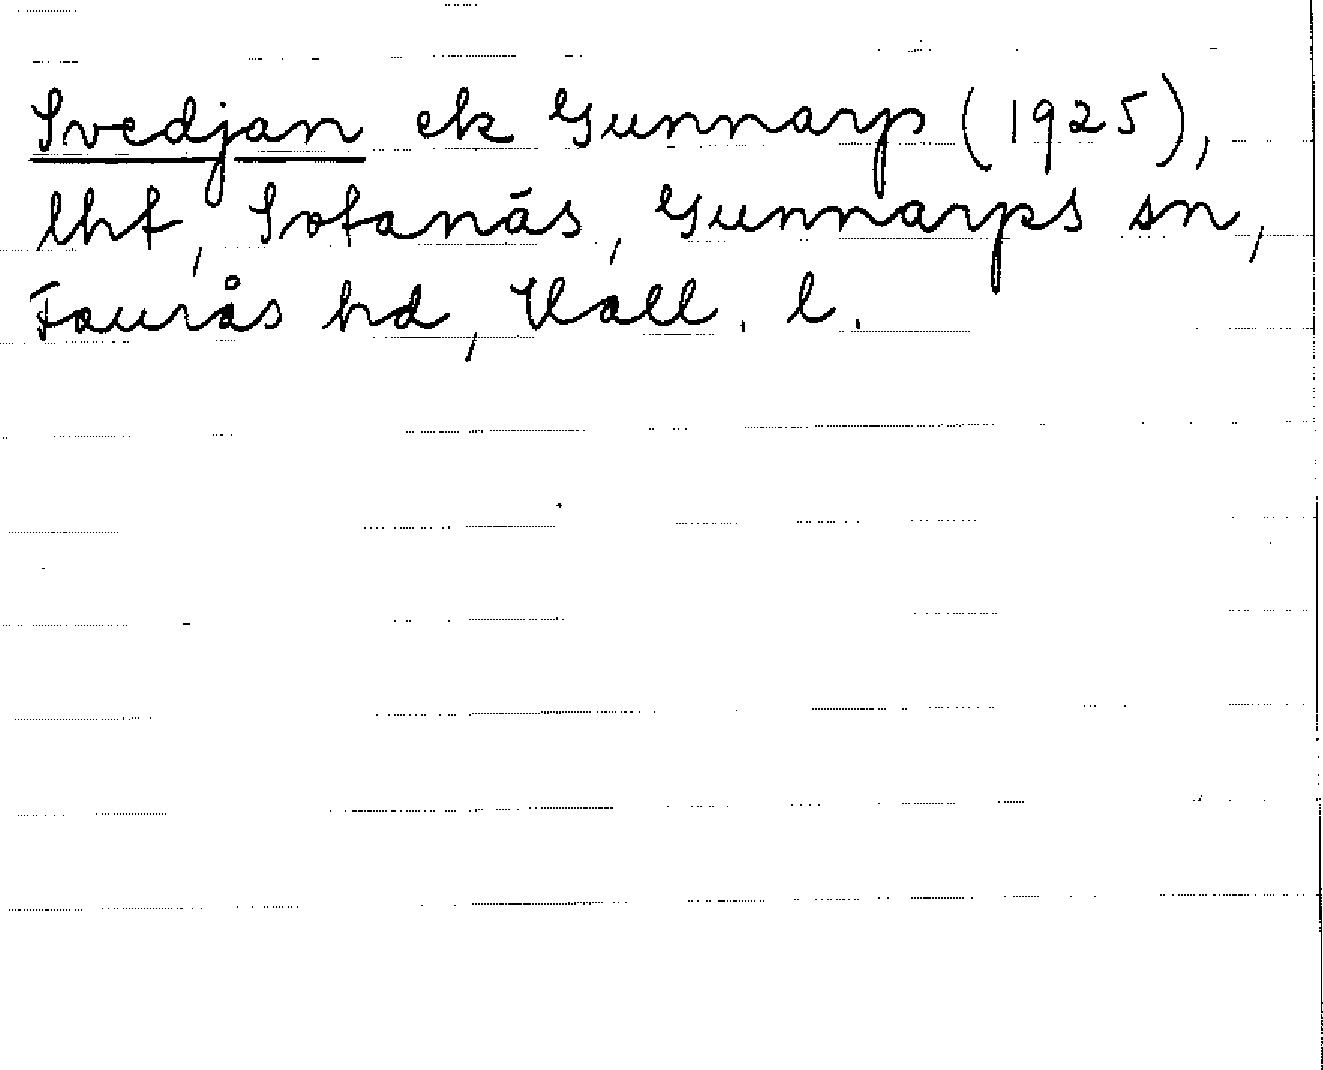 Svedjan ek Gunnarp (1925),
lht, Sotanäs, Gunnarps sn,
Faurås hd, Hall. l.